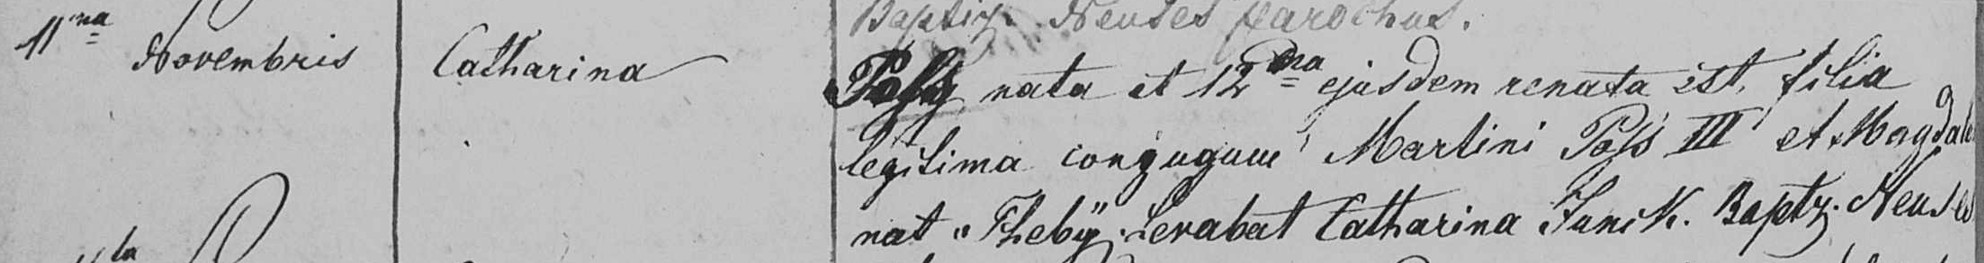 Baptiz. Neuses parochus.
11na
Novembris Catharina Poss nata et 12na ejusdem renata est, filia
legitima conjugum Martini Poss III et Magdale
nat. Theby. Levabat Catharina Funck. Baptz. Neuses